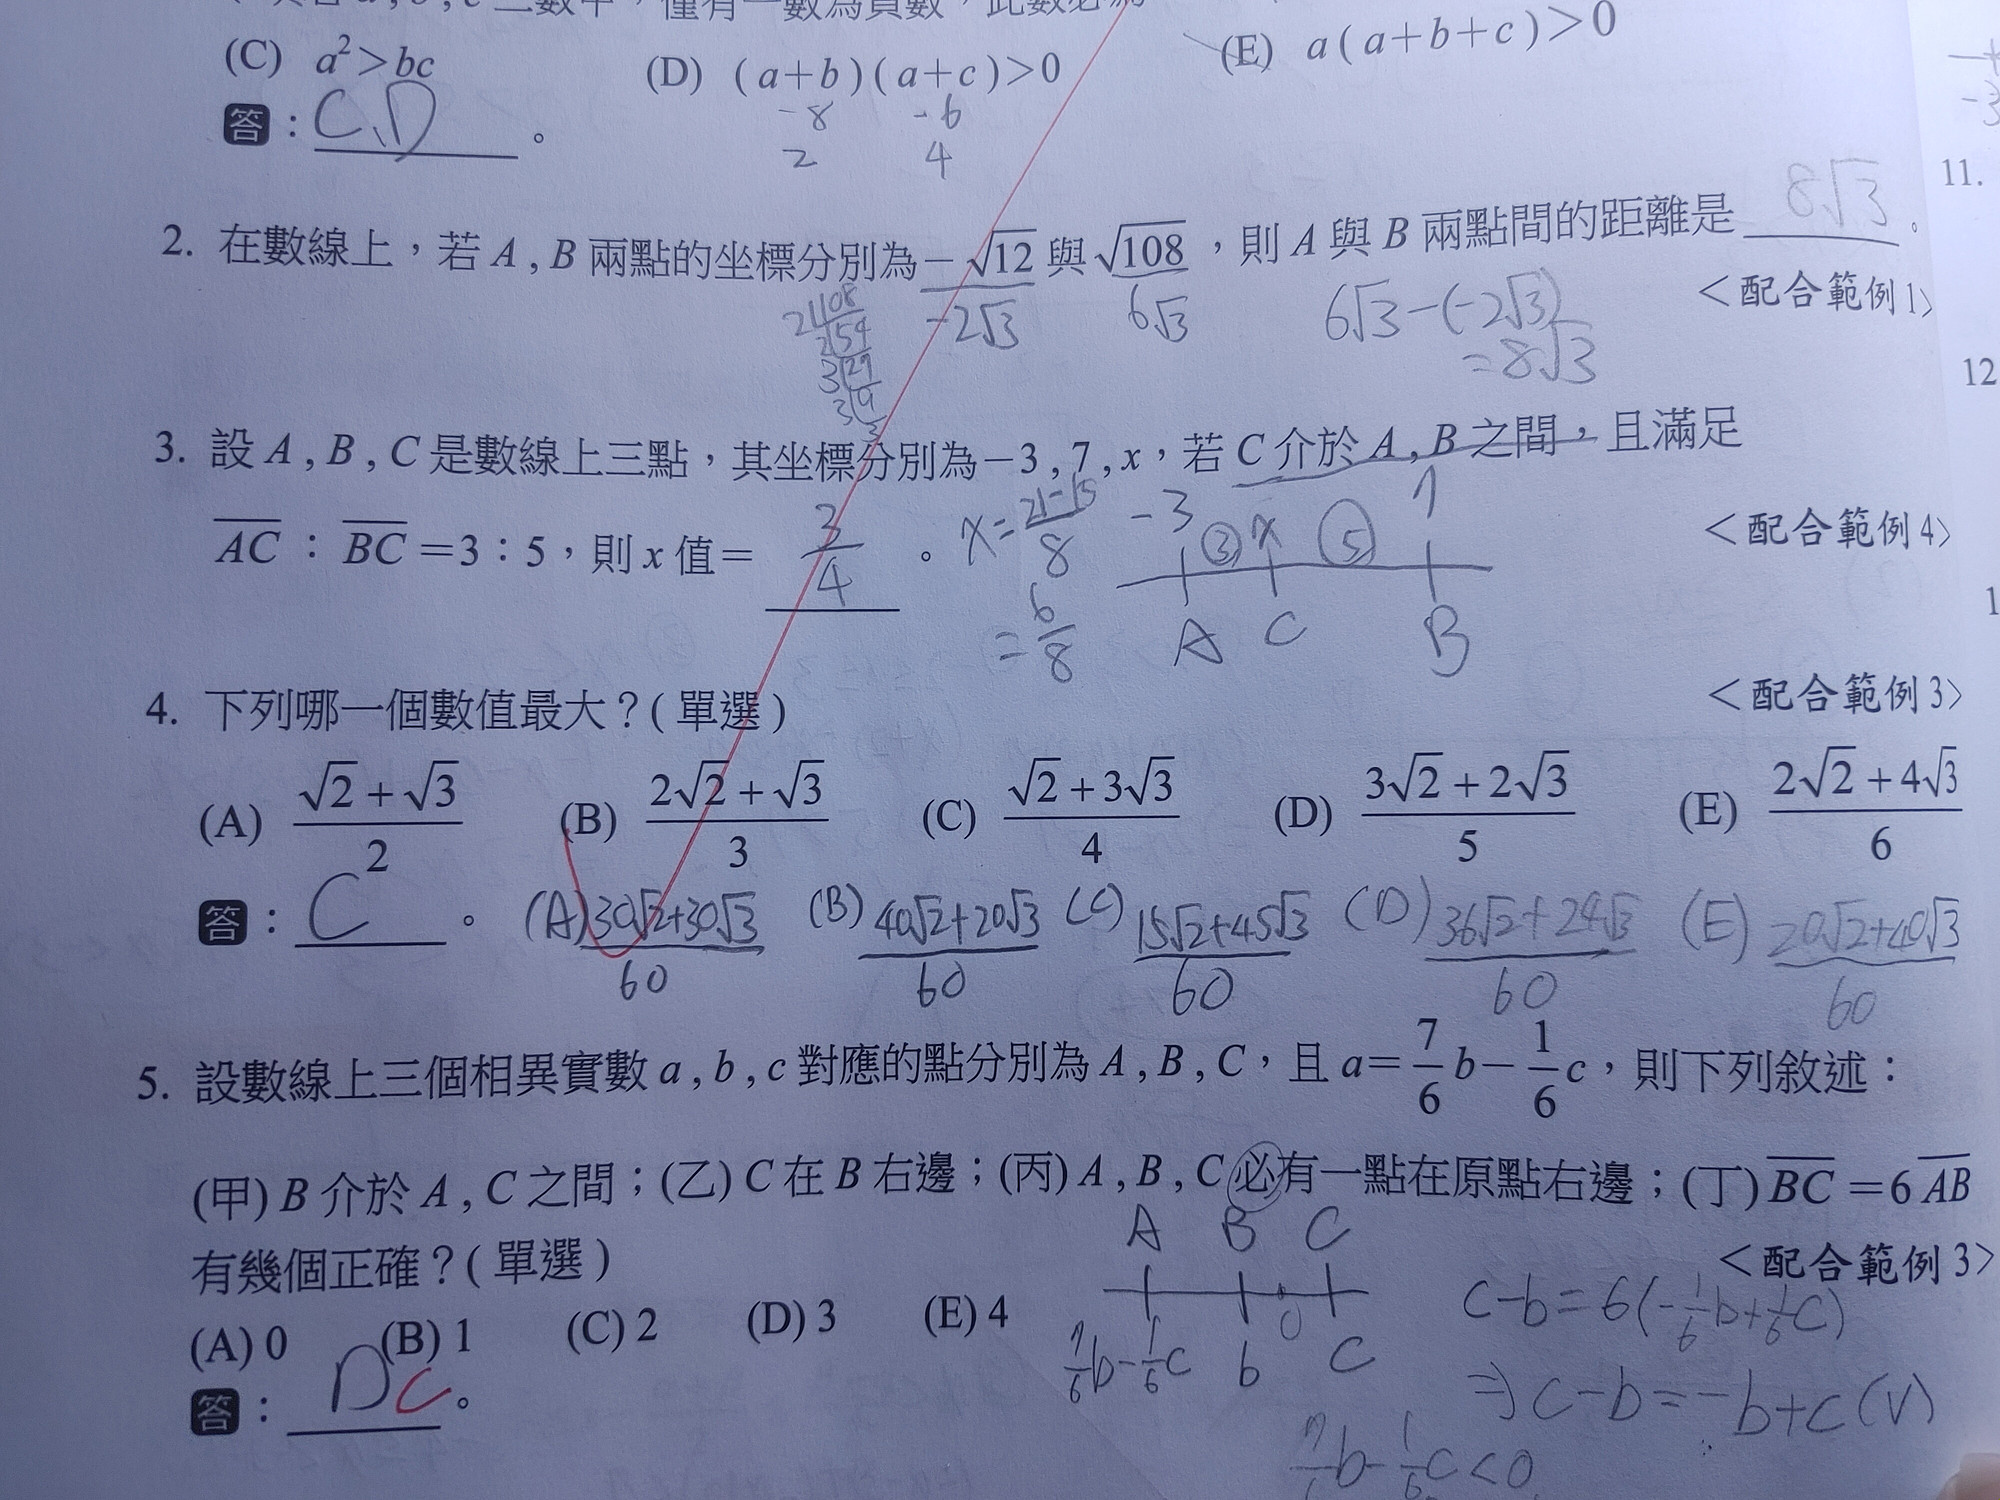 三數中，僅有一數為負數，此數必為
(C) a²>bc (D) (a+b)(a+c)>0 (E) a(a+b+c)>0
-8 -6
答：C,D 。
2 4
11.
2. 在數線上，若 A , B 兩點的坐標分別為 -√12 與 √108，則 A 與 B 兩點間的距離是 8√3 。
<配合範例 1>
-2√3 6√3 6√3-(-2√3)
=8√3
2|108
2|54
3|27
3|9
3
12
3. 設 A , B , C 是數線上三點，其坐標分別為 -3 , 7 , x，若 C 介於 A , B 之間，且滿足
AC：BC=3：5，則 x 值= 3/4 。 <配合範例 4>
x=(21-15)/8
=6/8
-3 ③ x ⑤ 7
A C B
4. 下列哪一個數值最大？( 單選 ) <配合範例 3>
(A) (√2+√3)/2 (B) (2√2+√3)/3 (C) (√2+3√3)/4 (D) (3√2+2√3)/5 (E) (2√2+4√3)/6
答：C 。
(A) (30√2+30√3)/60 (B) (40√2+20√3)/60 (C) (15√2+45√3)/60 (D) (36√2+24√3)/60 (E) (20√2+40√3)/60
5. 設數線上三個相異實數 a , b , c 對應的點分別為 A , B , C，且 a=7/6 b-1/6 c，則下列敘述：
(甲) B 介於 A , C 之間；(乙) C 在 B 右邊；(丙) A , B , C 必有一點在原點右邊；(丁) BC=6 AB
有幾個正確？( 單選 ) <配合範例 3>
(A) 0 (B) 1 (C) 2 (D) 3 (E) 4
答：D C 。
A B C
0
7/6b-1/6c b c
c-b=6(-1/6b+1/6c)
⇒c-b=-b+c (V)
7/6b-1/6c<0